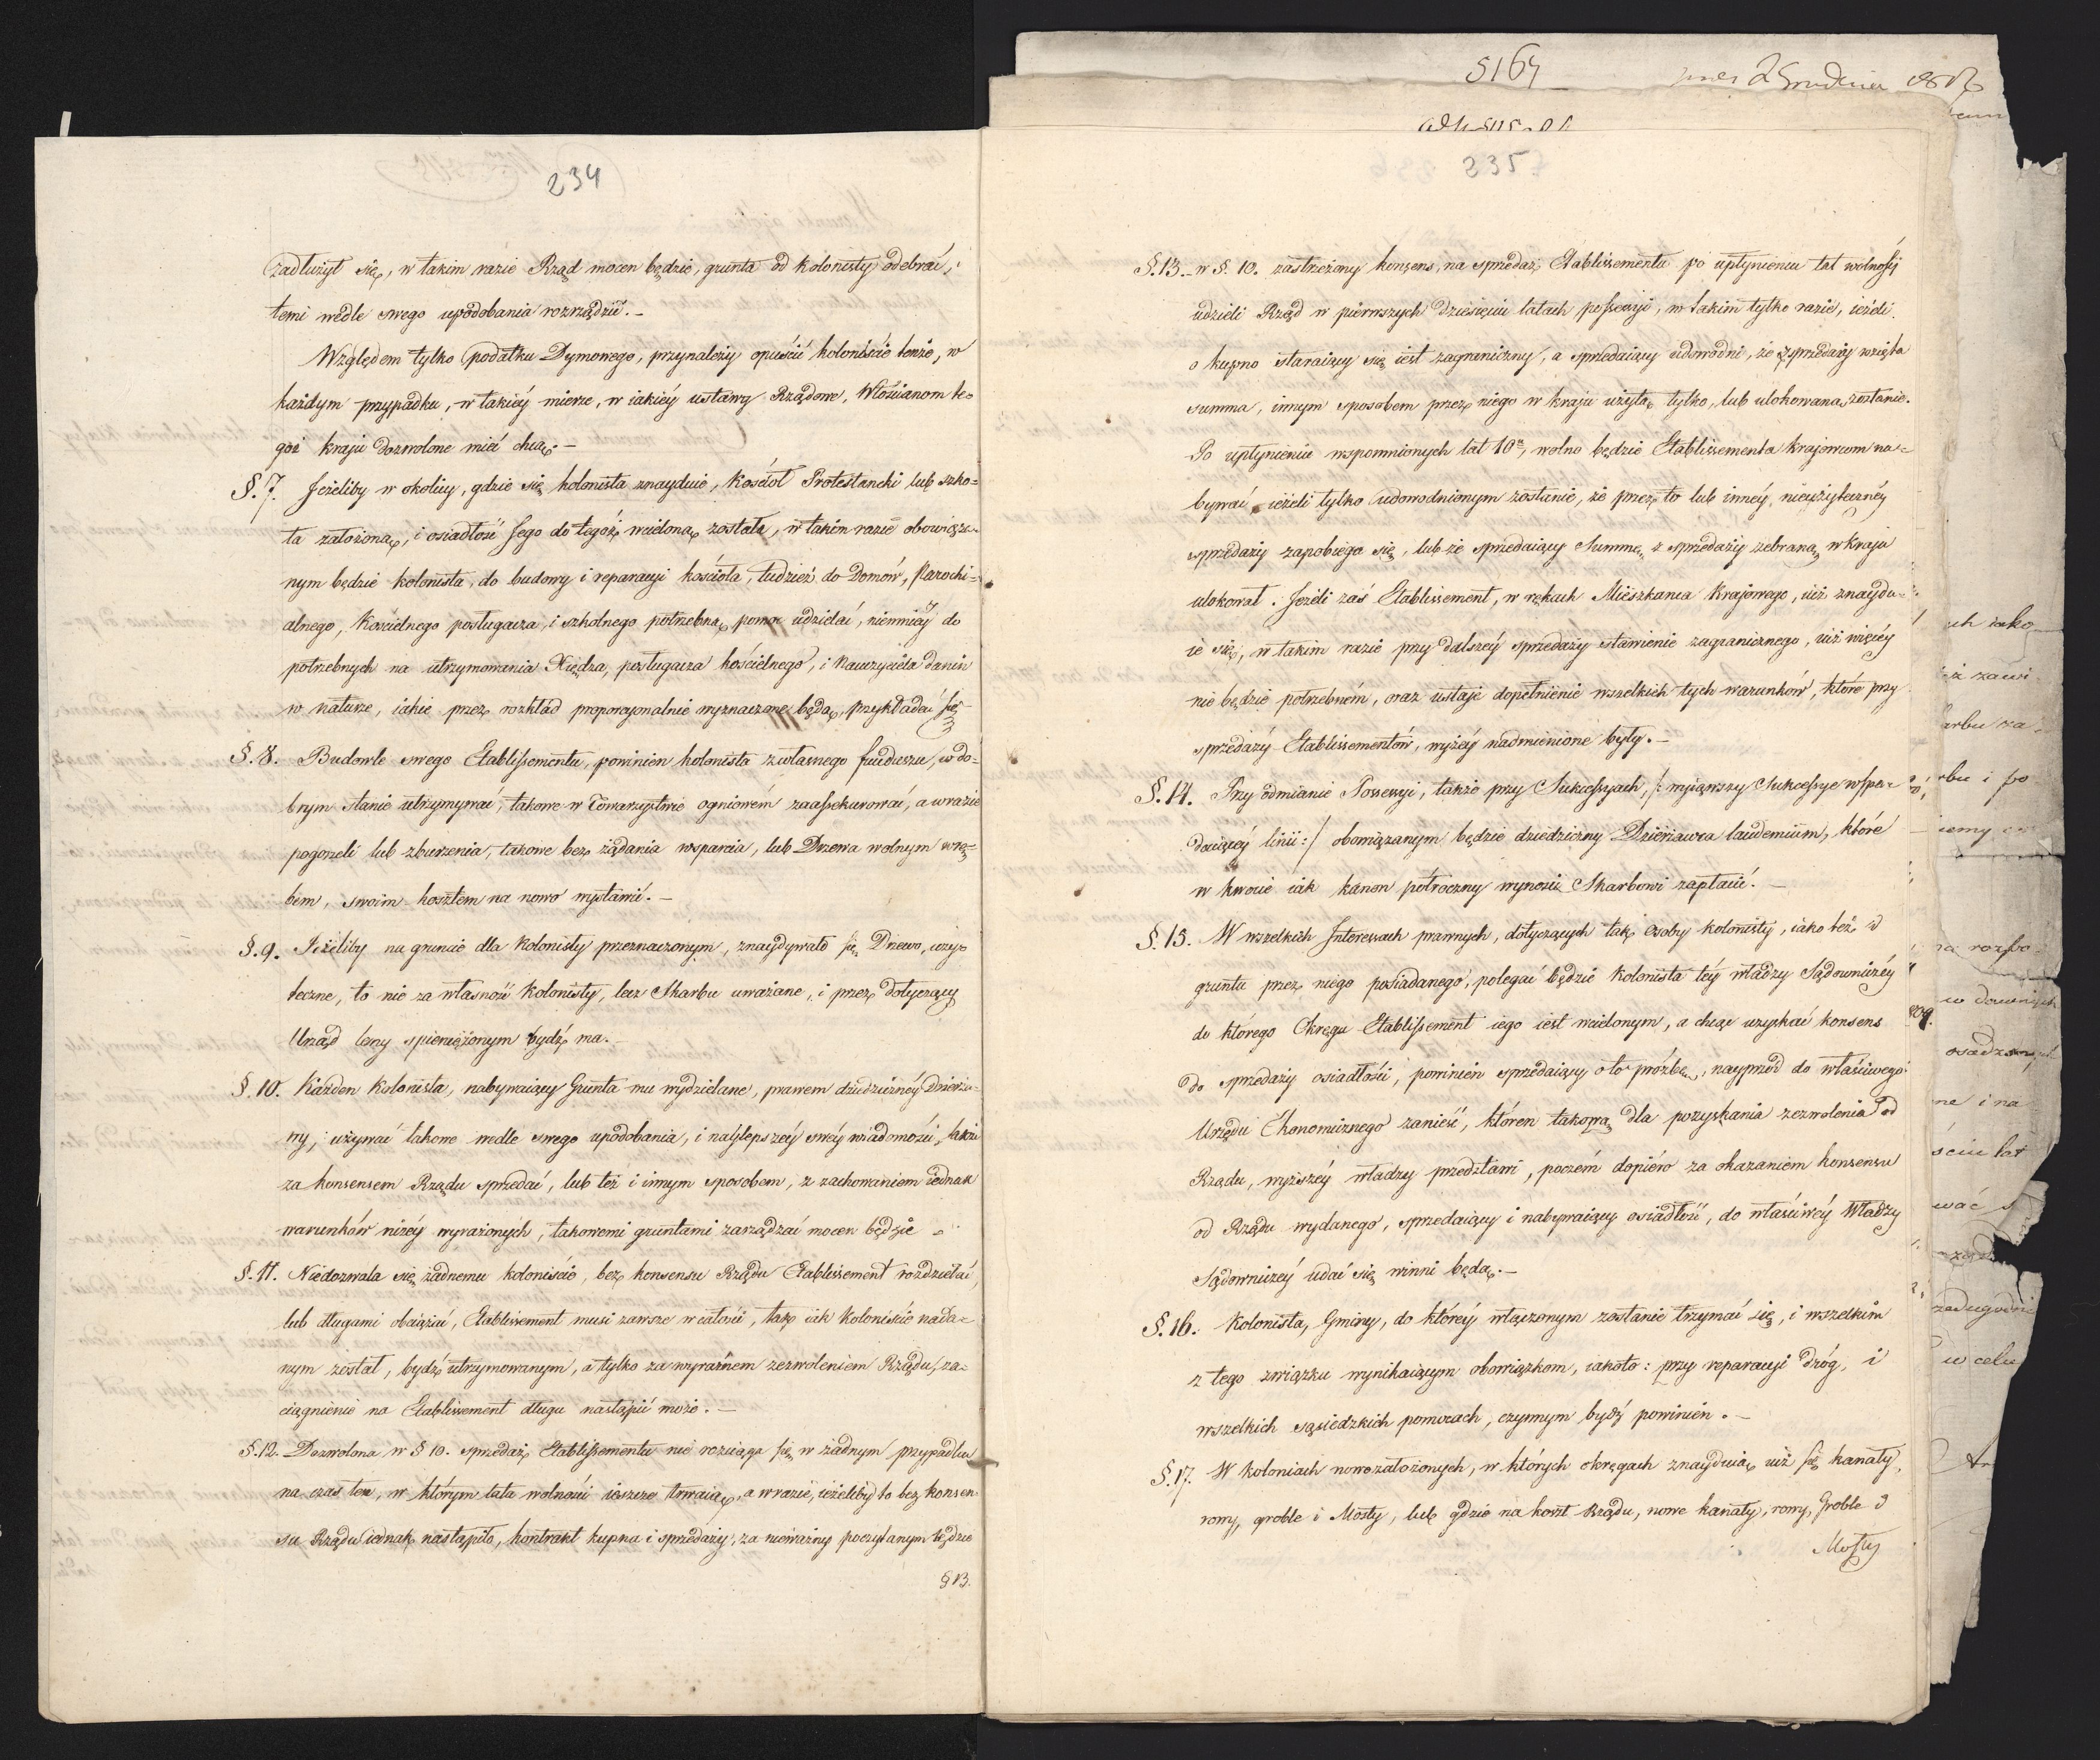 234
zadłużył się, w takim razie Rząd mocen będzie, grunta od kolonisty odebrać, i
temi wedle swego upodobania rozrządzić. —
Względem tylko podatku Dymowego, przynależy opuścić koloniście tenże, w
każdym przypadku, w takiéy mierze, w iakiéy ustawy Rządowe, Włościanom te-
goż kraju dozwolone mieć chcą. —
§. 7. Jeżeliby w okolicy, gdzie się kolonista znayduie, Kościoł Protestancki lub szko-
ła założoną, i osiadłość Jego do tegoż wcieloną została, w takim razie obowiąza-
nym będzie kolonista, do budowy i reparacyi kościoła, tudzież do Domów, Parochi-
alnego, Kościelnego posługacza, i szkolnego potrzebną pomoc udzielać, niemniéy do
potrzebnych na utrzymowania Xiędza, posługacza kościelnego, i Nauczyciela danin
w naturze, iakie przez rozkład proporcyonalnie wyznaczone będą, przykładać się
§. 8. Budowle swego Etablissementu, powinien kolonista z własnego funduszu, w do-
brym stanie utrzymywać, takowe w Towarzystwie ogniowém zaassekurować, a w razie
pogorzeli lub zburzenia, takowe bez żądania wsparcia, lub Drzewa wolnym wrę-
bem, swoim kosztem na nowo wystawić. —
§. 9. Jeżeliby na gruncie dla Kolonisty przeznaczonym, znaydywało się Drzewo, uży-
teczne, to nie za własność Kolonisty, lecz Skarbu uważane, i przez dotyczący
Urząd leśny spieniężonym bydź ma. —
§. 10. Każden Kolonista, nabywaiący Grunta mu wydzielane, prawem dziedzicznéy Dzierża-
wy, używać takowe wedle swego upodobania, i naylepszéy swéy wiadomości, także
za konsensem Rządu sprzedać, lub też i innym sposobem, z zachowaniem iednak
warunków niżéy wyrażonych, takowemi gruntami zarządzać mocen będzie —
§. 11. Niedozwala się żadnemu koloniście, bez konsensu Rządu Etablissement rozdzielać,
lub długami obciążać, Etablissement musi zawsze w całości, tak iak Koloniście nada-
nym został, bydź utrzymowanym, a tylko za wyraźnem zezwoleniem Rządu, za-
ciągnienie na Etablissement długu nastąpić może. —
§. 12. Dozwolona w § 10. sprzedaż Etablissementu nie rozciąga się w żadnym przypadku
na czas ten, w którym lata wolności ieszcze trwaią, a w razie, ieżeliby to bez konsen-
su Rządu iednak nastąpiło, kontrakt kupna i sprzedaży, za nieważny poczytanym będzie
§ 13.
5164
2 Grudnia
235
§. 13. w §. 10. zastrzeżony konsens, na sprzedaż Etablissementu po upłynieniu lat wolności
udzieli Rząd w pierwszych dziesięciu latach possessyi, w takim tylko razie, ieżeli
o kupno staraiący się iest zagraniczny, a sprzedaiący udowodni, że z sprzedaży wzięta
summa, innym sposobem przez niego w kraju użytą tylko, lub ulokowaną zostanie.
Po upłynieniu wspomnionych lat 10u, wolno będzie Etablissementa krajowcom na-
bywać, ieżeli tylko udowodnionym zostanie, że przez to lub innéy, nieużytecznéy
sprzedaży zapobiega się, lub że sprzedaiący Summę z sprzedaży zebraną w kraju
ulokował. Jeżeli zaś Etablissement, w rękach Mieszkańca Krajowego, iuż znaydu-
ie się, w takim razie przy dalszéy sprzedaży stawienie zagranicznego, iuż więcéy
nie będzie potrzebném, oraz ustaje dopełnienie wszelkich tych warunków, które przy
sprzedaży Etablissementów, wyżéy nadmienione były. —
§. 14. Przy odmianie Possessyi, także przy Sukcessyach, /: wyiąwszy Sukcessye w spa-
daiącéy linii :/ obowiązanym będzie dziedziczny Dzierżawca laudemium, które
w kwocie iak kanon półroczny wynosić Skarbowi zapłacić. —
§. 15. W wszelkich Interessach prawnych, dotyczących tak osoby kolonisty, iako też i
gruntu przez niego posiadanego, polegać będzie Kolonista téy władzy Sądowniczéy
do którego Okręgu Etablissement iego iest wcielonym, a chcąc uzyskać konsens
do sprzedaży osiadłości, powinien sprzedaiący o to prośbę, nayprzód do właściwego
Urzędu Ekonomicznego zanieść, któren takową dla pozyskania zezwolenia od
Rządu, wyższéy władzy przedstawi, poczém dopiéro za okazaniem konsensu
od Rządu wydanego, sprzedaiący i nabywaiący osiadłość, do właściwéy Władzy
Sądowniczéy udać się winni będą. —
§. 16. Kolonista, Gminy, do któréy włączonym zostanie trzymać się, i wszelkim
z tego związku wynikaiącym obowiązkom, iakoto: przy reparacyi dróg, i
wszelkich sąsiedzkich pomocach, czynnym bydź powinien. —
§. 17. W koloniach nowozałożonych, w których okręgach znayduią iuż się kanały,
rowy, groble i Mosty, lub gdzie na koszt Rządu, nowe kanały, rowy, Groble i
Mosty